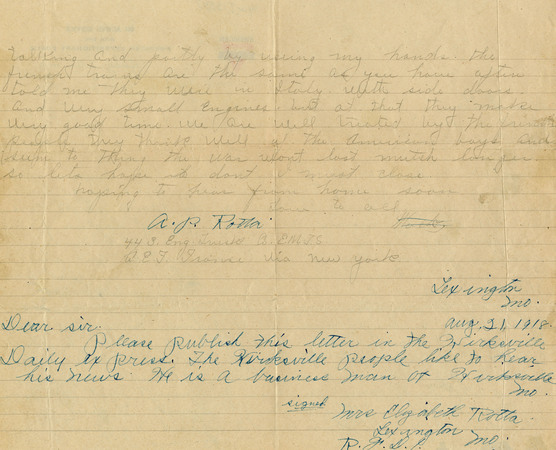 talking and partly by using my hands. the
french trains are the same as you have often
told me they were in Italy with side doors
and very small Engines. but at that they make
very good time. we are well treated by the french
people they think well of the American boys and
seem to think the war wont last mutch longer.
so lets hope it dont. I must close
hoping to hear from home soon
love to all
A. P. Rotta
443. Eng
A.E.F. France Via new york
Lexington
Mo.
Aug. 21, 1918.
Dear sir.
Please publish this letter in the Kirksville
Daily Express. The Kirksville people like to hear
his news. He is a business man of Kirksville
Mo.
signed Mrs Elizabeth Rotta.
Lexington
R.F.D.1. Mo.